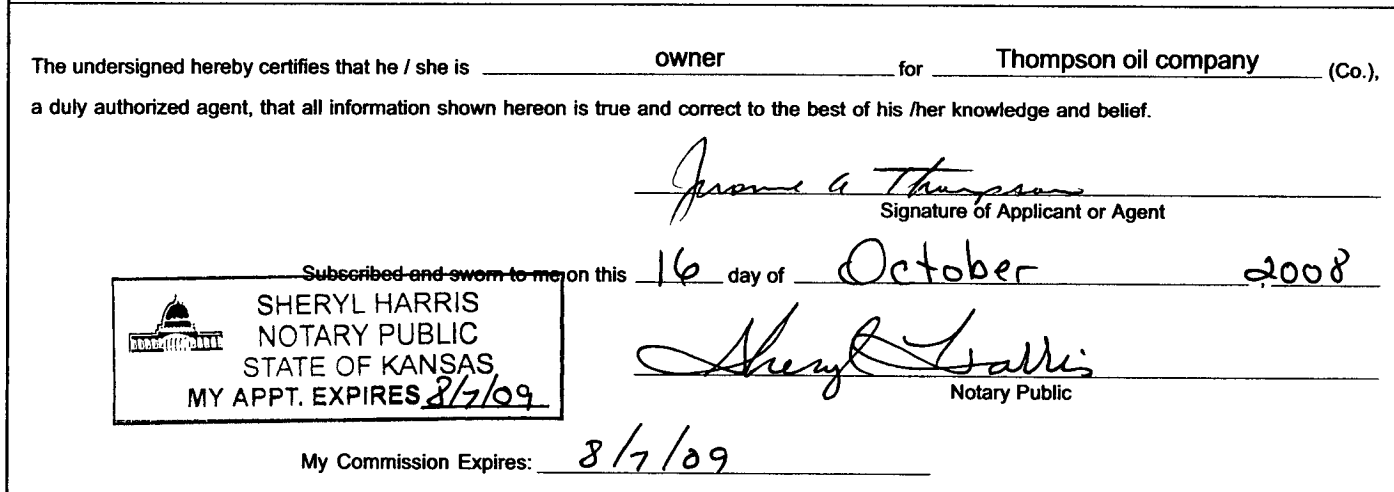 The undersigned hereby certifies that he / she is owner for Thompson oil company (Co.),
a duly authorized agent, that all information shown hereon is true and correct to the best of his /her knowledge and belief.
Jerome A Thompson
Signature of Applicant or Agent
Subscribed and sworn to me on this 16 day of October , 2008
SHERYL HARRIS
NOTARY PUBLIC
STATE OF KANSAS
MY APPT. EXPIRES 8/7/09
Sheryl Harris
Notary Public
My Commission Expires: 8/7/09